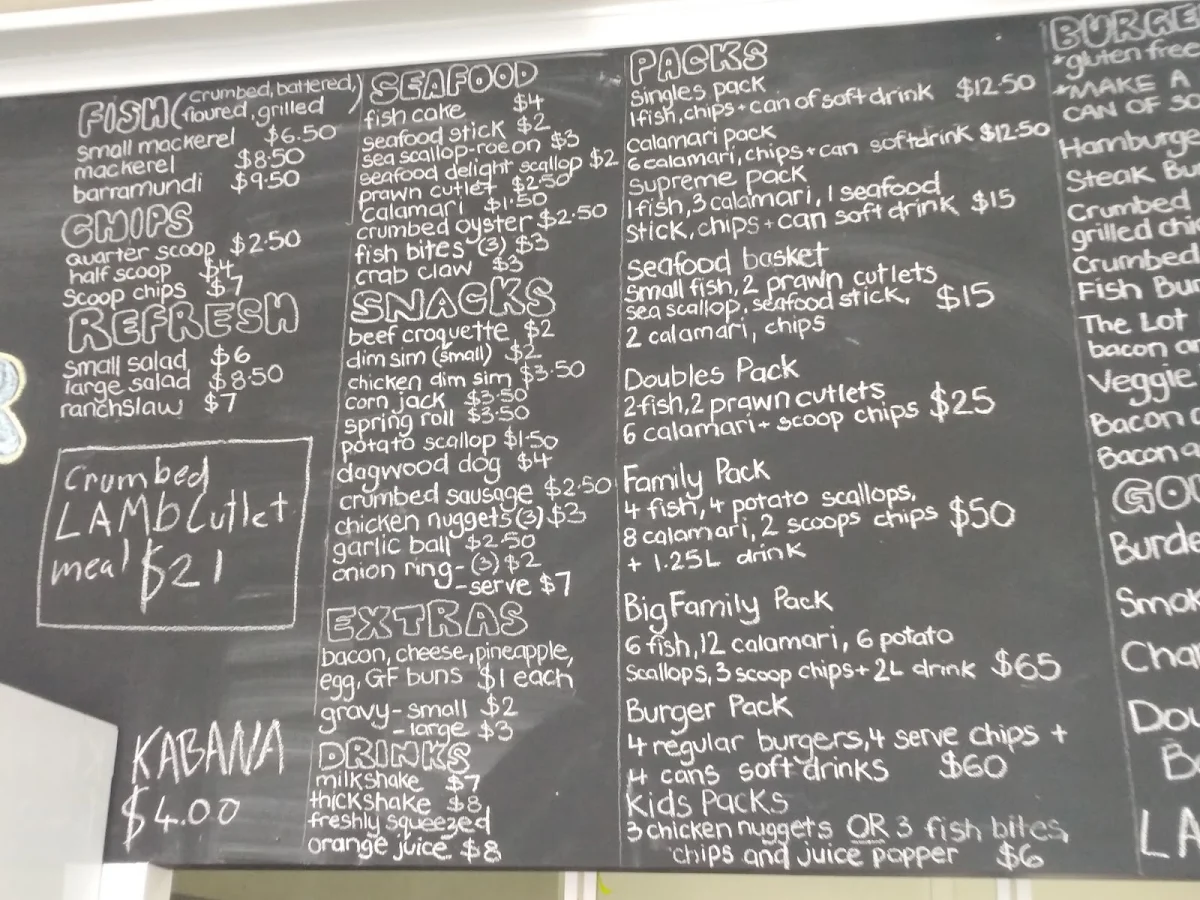 FISH (crumbed, battered, floured, grilled)
small mackerel $6.50
mackerel $8.50
barramundi $9.50
CHIPS
quarter scoop $2.50
half scoop $4
scoop chips $7
REFRESH
small salad $6
large salad $8.50
ranchslaw $7
Crumbed
LAMb Cutlet
meal $21
KABANA
$4.00
SEAFOOD
fish cake $4
seafood stick $2
sea scallop-roe on $3
seafood delight scallop $2
prawn cutlet $2.50
calamari $1.50
crumbed oyster $2.50
fish bites (3) $3
crab claw $3
SNACKS
beef croquette $2
dim sim (small) $2
chicken dim sim $3.50
corn jack $3.50
spring roll $3.50
potato scallop $1.50
dagwood dog $4
crumbed sausage $2.50
chicken nuggets (3) $3
garlic ball $2.50
onion ring - (3) $2
- serve $7
EXTRAS
bacon, cheese, pineapple,
egg, GF buns $1 each
gravy - small $2
- large $3
DRINKS
milkshake $7
thickshake $8
freshly squeezed
orange juice $8
PACKS
singles pack
1 fish, chips + can of soft drink $12.50
calamari pack
6 calamari, chips + can softdrink $12.50
supreme pack
1 fish, 3 calamari, 1 seafood
stick, chips + can soft drink $15
seafood basket
small fish, 2 prawn cutlets
sea scallop, seafood stick, $15
2 calamari, chips
Doubles Pack
2 fish, 2 prawn cutlets
6 calamari + scoop chips $25
Family Pack
4 fish, 4 potato scallops,
8 calamari, 2 scoops chips $50
+ 1.25L drink
Big Family Pack
6 fish, 12 calamari, 6 potato
scallops, 3 scoop chips + 2L drink $65
Burger Pack
4 regular burgers, 4 serve chips +
4 cans soft drinks $60
Kids Packs
3 chicken nuggets OR 3 fish bites,
chips and juice popper $6
BURGE
*gluten free
*MAKE A
CAN OF SO
Hamburge
Steak Bu
Crumbed
grilled chi
Crumbed
Fish Bur
The Lot
bacon an
Veggie
Bacon
Bacon a
GOU
Burde
Smok
Cha
Dou
B
LA